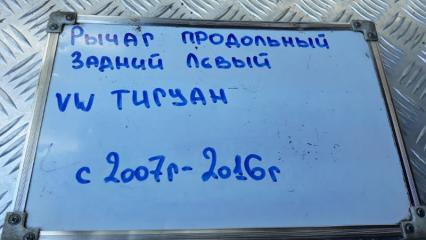 Рычаг продольный
задний левый
VW Тигуан
с 2007г-2016г